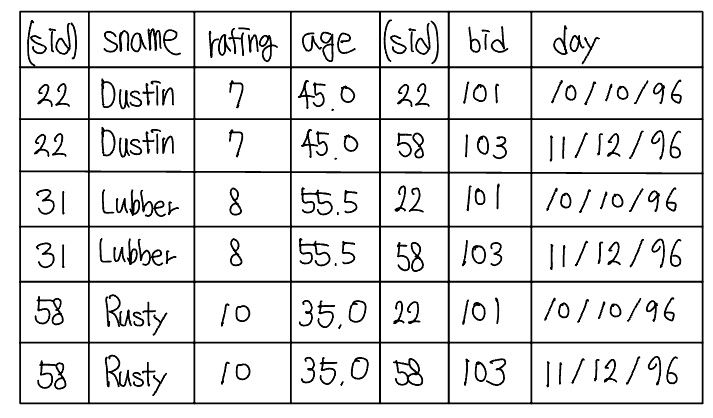 (sid) sname rating age (sid) bid day
22 Dustin 7 45.0 22 101 10/10/96
22 Dustin 7 45.0 58 103 11/12/96
31 Lubber 8 55.5 22 101 10/10/96
31 Lubber 8 55.5 58 103 11/12/96
58 Rusty 10 35.0 22 101 10/10/96
58 Rusty 10 35.0 58 103 11/12/96